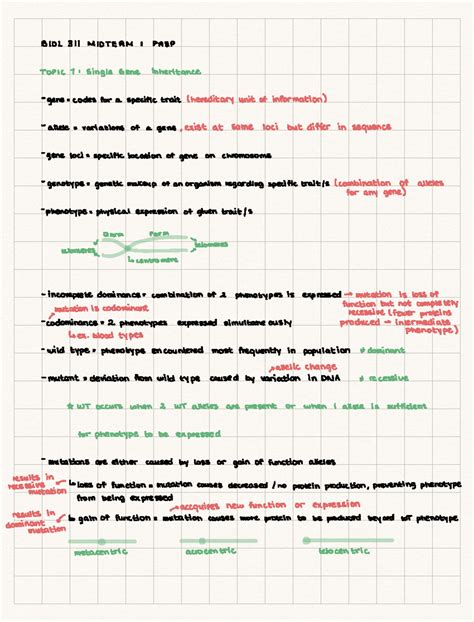 BIOL 311 MIDTERM 1 PREP
TOPIC 1: Single Gene Inheritance
- gene = codes for a specific trait (hereditary unit of information)
- allele = variations of a gene, exist at same loci but differ in sequence
- gene loci = specific location of gene on chromosome
- genotype = genetic makeup of an organism regarding specific trait/s (combination of alleles
for any gene)
- phenotype = physical expression of given trait/s
telomeres
telomeres
centromere
- incomplete dominance = combination of 2 phenotypes is expressed → mutation is loss of
function but not completely
recessive (fewer proteins
produced → intermediate
phenotype)
mutation is codominant
- codominance = 2 phenotypes expressed simultaneously
ex. blood types
- wild type = phenotype encountered most frequently in population # dominant
allelic change
- mutant = deviation from wild type caused by variation in DNA # recessive
* WT occurs when 2 WT alleles are present or when 1 allele is sufficient
for phenotype to be expressed
- mutations are either caused by loss or gain of function alleles
results in
recessive
mutation
↳ loss of function = mutation causes decreased / no protein production, preventing phenotype
from being expressed
accquires new function or expression
results in
dominant
mutation
↳ gain of function = mutation causes more protein to be produced beyond WT phenotype
metacentric
acrocentric
telocentric